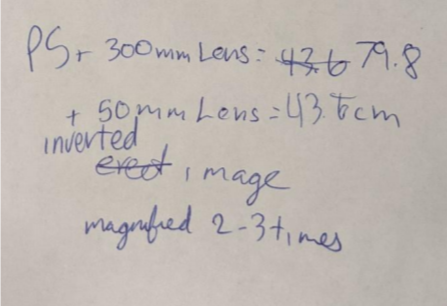 PS + 300mm Lens = ~~43.6~~ 79.8
+ 50mm Lens = 43.6cm
inverted
~~erect~~ image
magnified 2-3 times